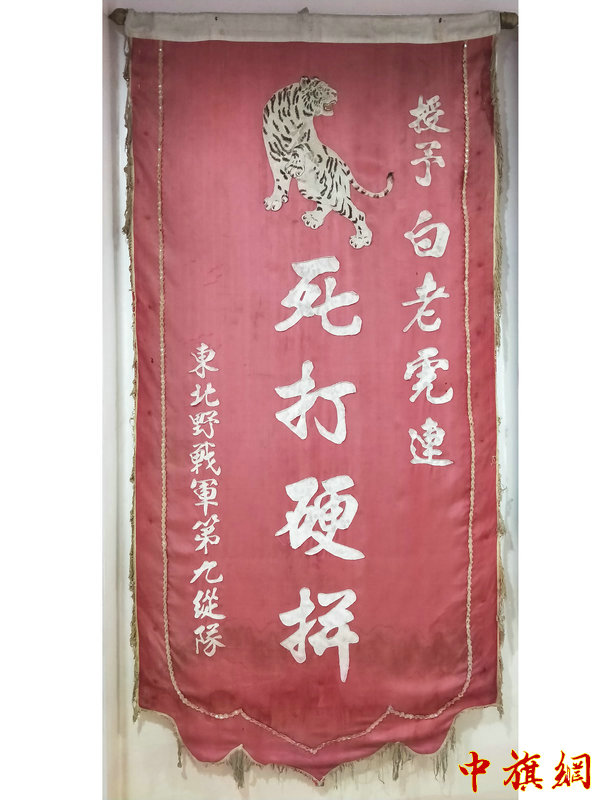 授予白老虎連
死打硬拼
東北野戰軍第九縱隊
中旗網